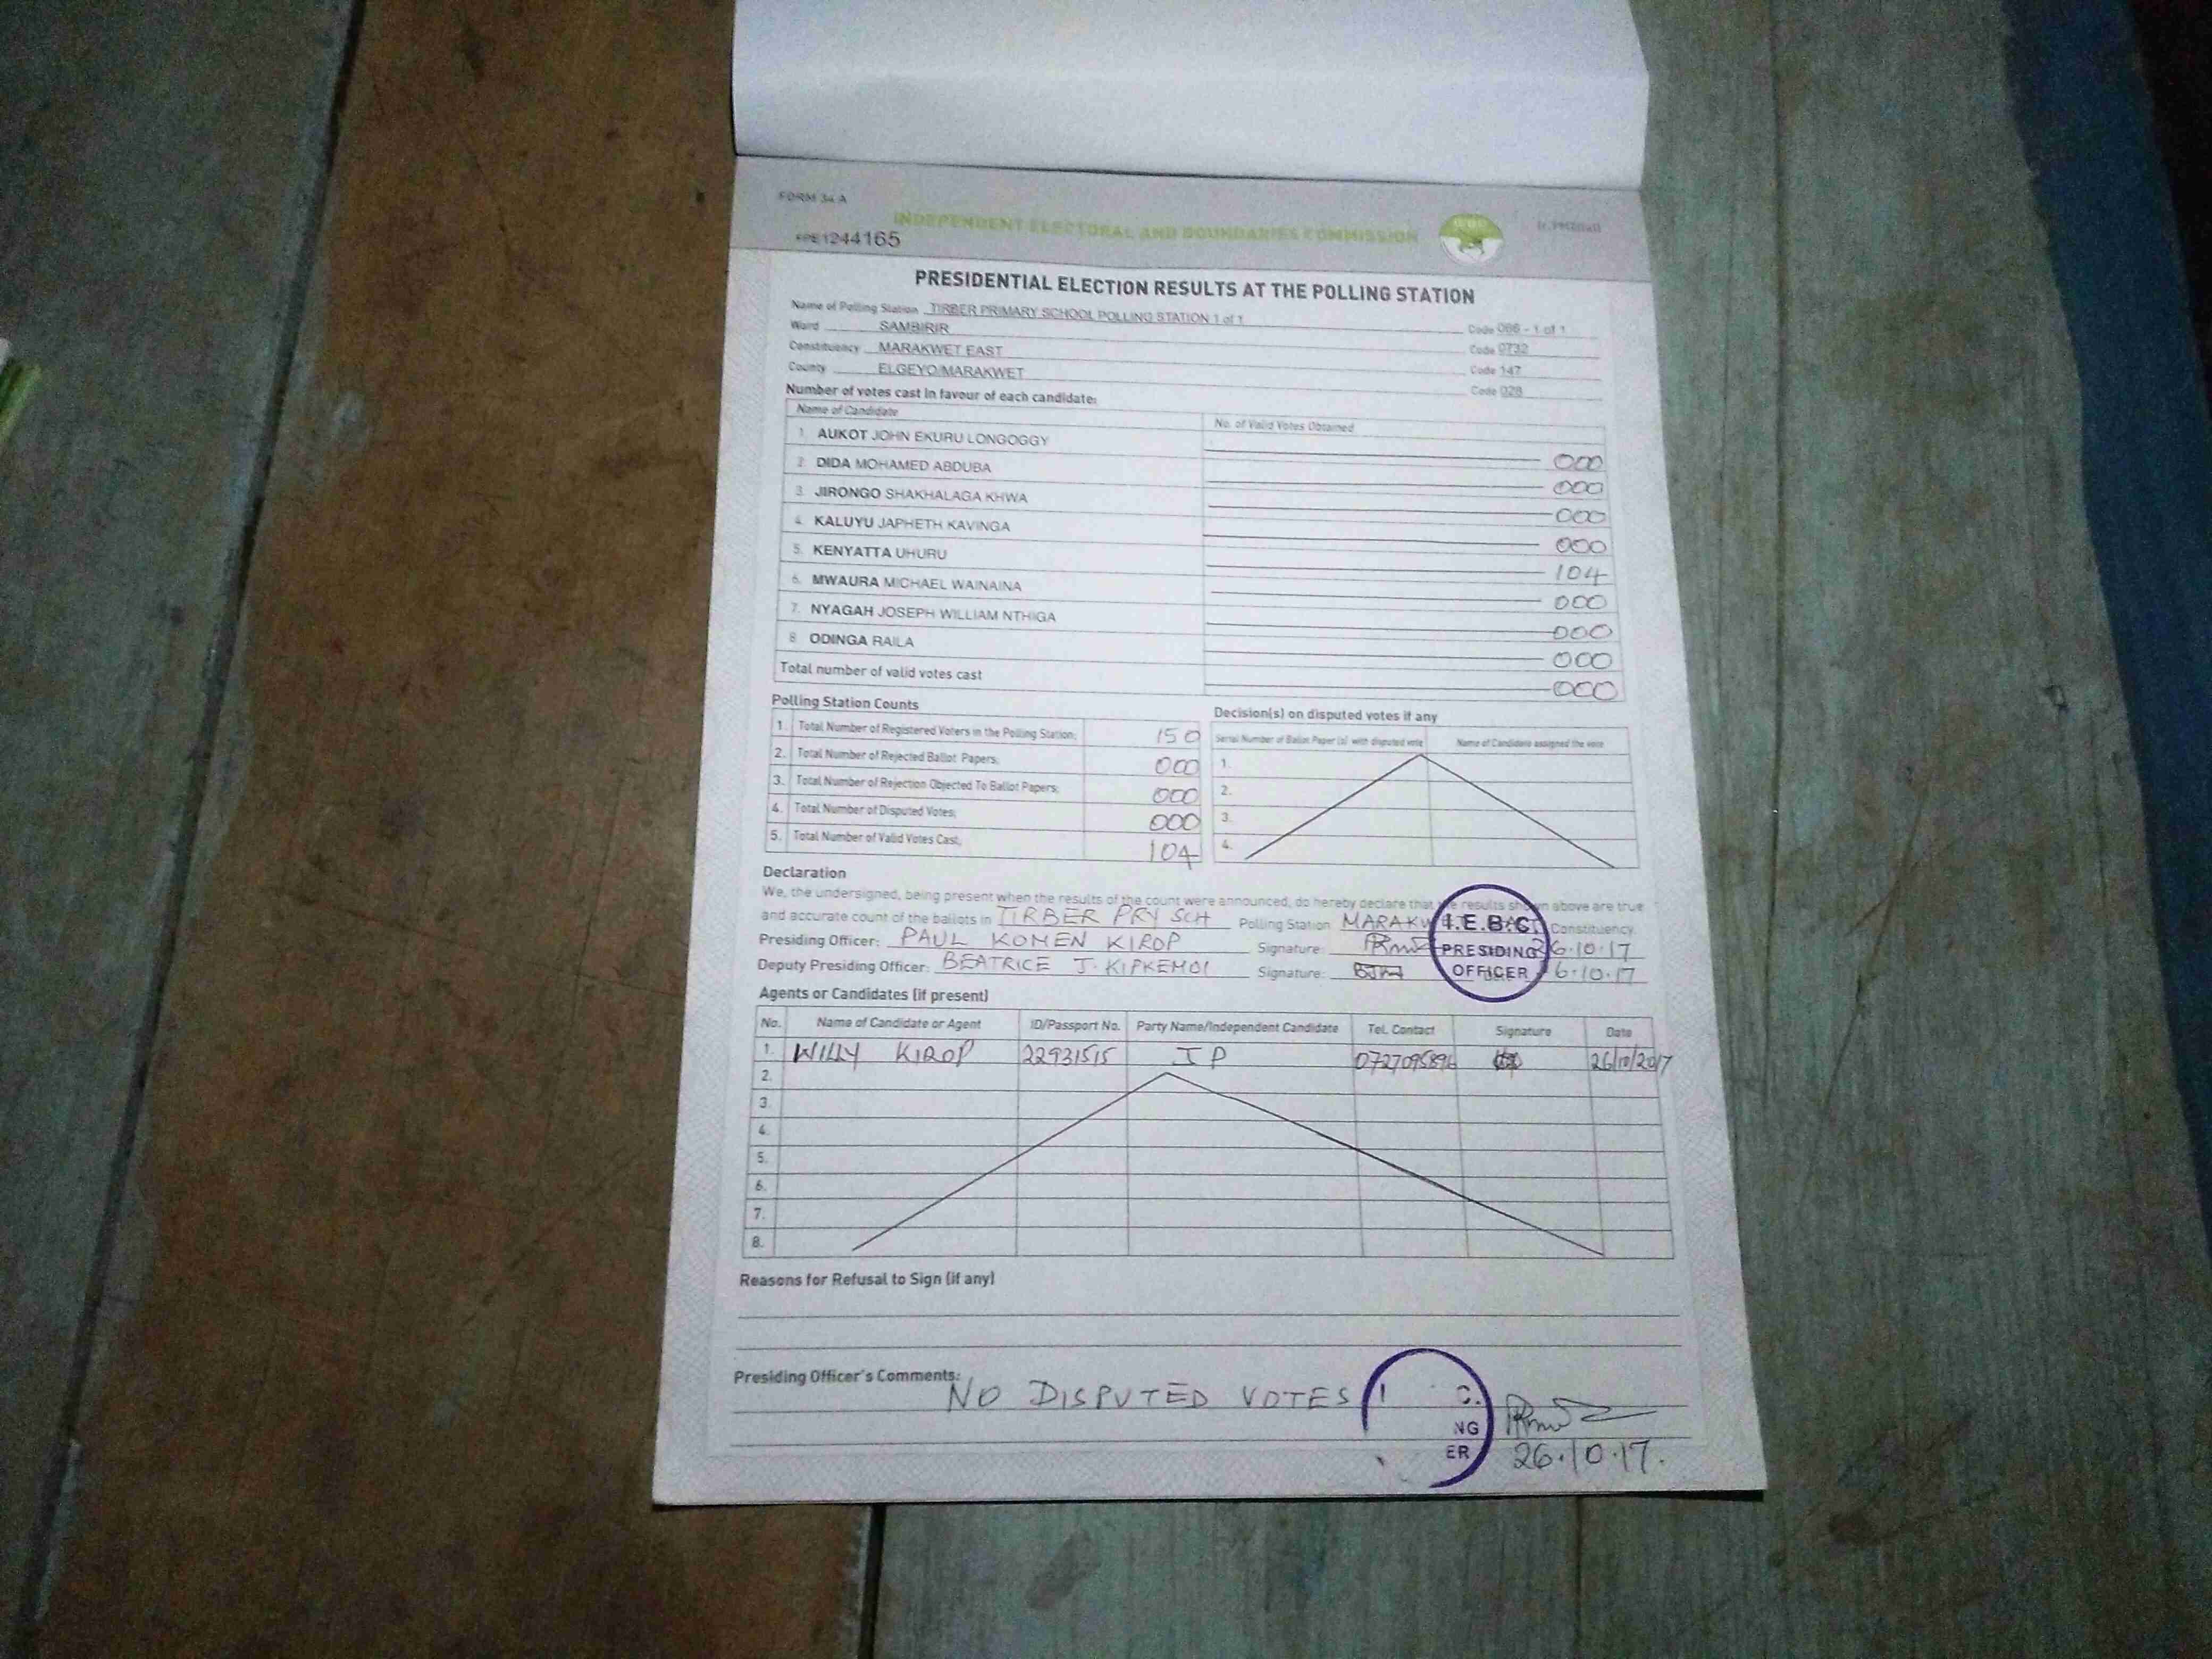 FORM 34 A
INDEPENDENT ELECTORAL AND BOUNDARIES COMMISSION
1244165
PRESIDENTIAL ELECTION RESULTS AT THE POLLING STATION
Name of Polling Station TIRBER PRIMARY SCHOOL POLLING STATION 1 of 1 Code 086 - 1 of 1
Ward SAMBIRIR Code 0732
Constituency MARAKWET EAST Code 147
County ELGEYO/MARAKWET Code 028
Number of votes cast in favour of each candidate:
Name of Candidate No. of Valid Votes Obtained
1. AUKOT JOHN EKURU LONGOGGY 000
2. DIDA MOHAMED ABDUBA 000
3. JIRONGO SHAKHALAGA KHWA 000
4. KALUYU JAPHETH KAVINGA 000
5. KENYATTA UHURU 104
6. MWAURA MICHAEL WAINAINA 000
7. NYAGAH JOSEPH WILLIAM NTHIGA 000
8. ODINGA RAILA 000
Total number of valid votes cast 000
Polling Station Counts
1. Total Number of Registered Voters in the Polling Station; 150
2. Total Number of Rejected Ballot Papers; 000
3. Total Number of Rejection Objected To Ballot Papers; 000
4. Total Number of Disputed Votes; 000
5. Total Number of Valid Votes Cast; 104
Decision(s) on disputed votes if any
Serial Number of Ballot Paper (s) with disputed vote Name of Candidate assigned the vote
1.
2.
3.
4.
Declaration
We, the undersigned, being present when the results of the count were announced, do hereby declare that the results shown above are true
and accurate count of the ballots in TIRBER PRY SCH Polling Station MARAKW Constituency
Presiding Officer: PAUL KOMEN KIROP Signature: 26.10.17
Deputy Presiding Officer: BEATRICE J. KIPKEMOI Signature: BJM 26.10.17
I.E.B.C.
PRESIDING
OFFICER
Agents or Candidates (if present)
No. Name of Candidate or Agent ID/Passport No. Party Name/Independent Candidate Tel. Contact Signature Date
1. WILLY KIROP 22931515 JP 0727095896 26/10/2017
2.
3.
4.
5.
6.
7.
8.
Reasons for Refusal to Sign (if any)
Presiding Officer's Comments:
NO DISPUTED VOTES
I C.
NG
ER
26.10.17.